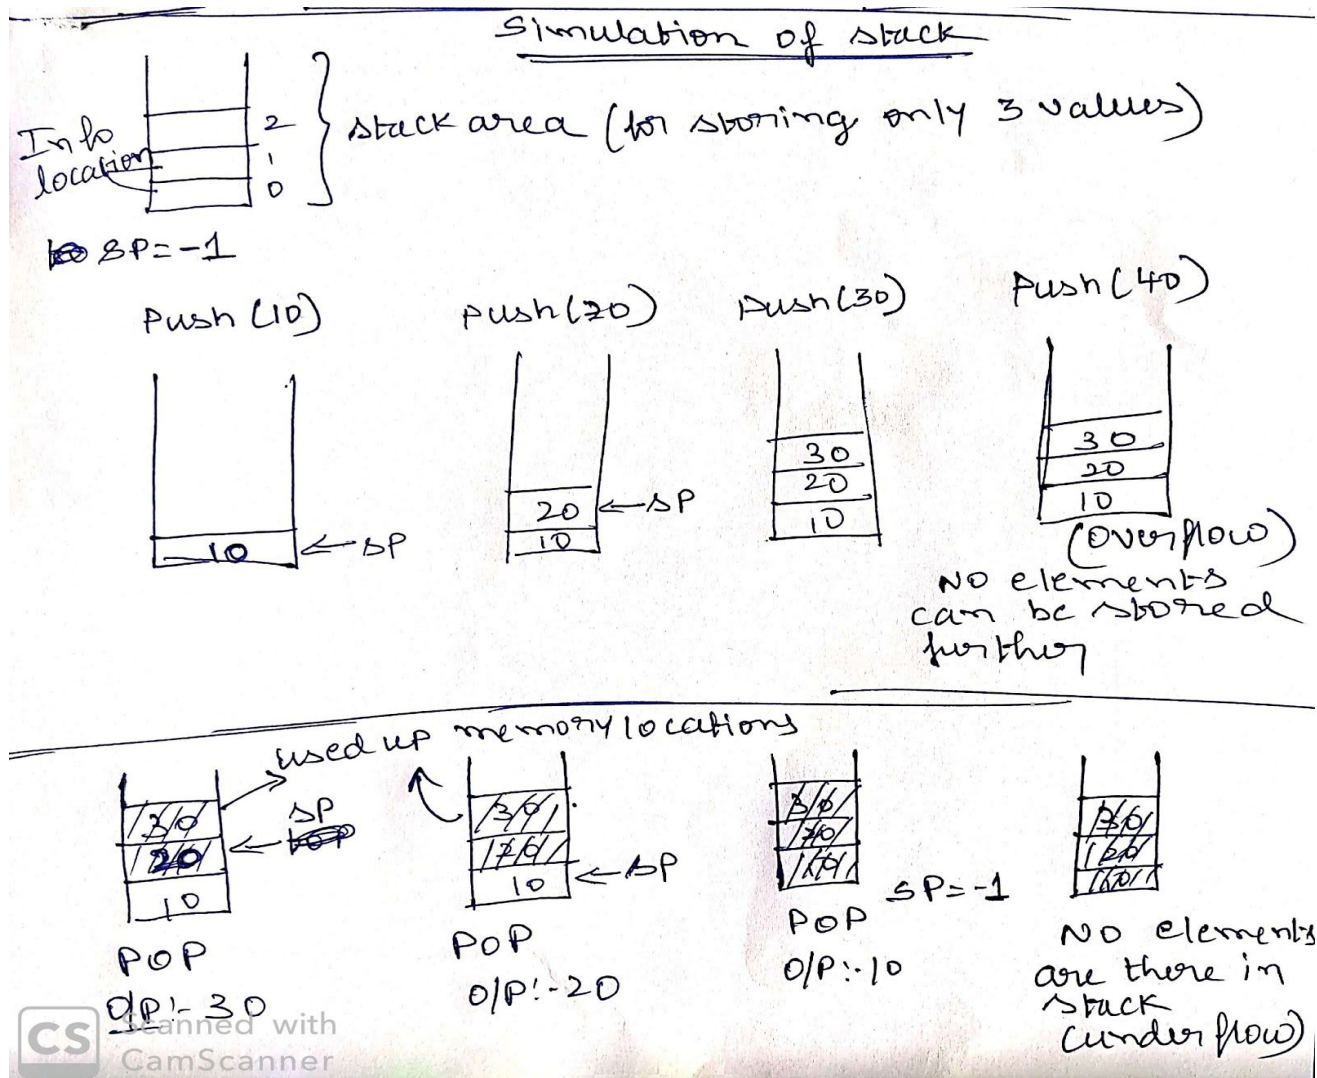 Simulation of stack
Info
location
2
1
0
stack area (for storing only 3 values)
SP=-1
Push (10)
push (20)
push (30)
push (40)
10
← SP
20
10
← SP
30
20
10
30
20
10
(overflow)
No elements
can be stored
further
used up memory locations
30
20
10
← SP
POP
O/P:- 30
30
20
10
← SP
POP
O/P:- 20
30
20
10
SP=-1
POP
O/P:- 10
30
20
10
No elements
are there in
stack
(underflow)
CS
Scanned with
CamScanner